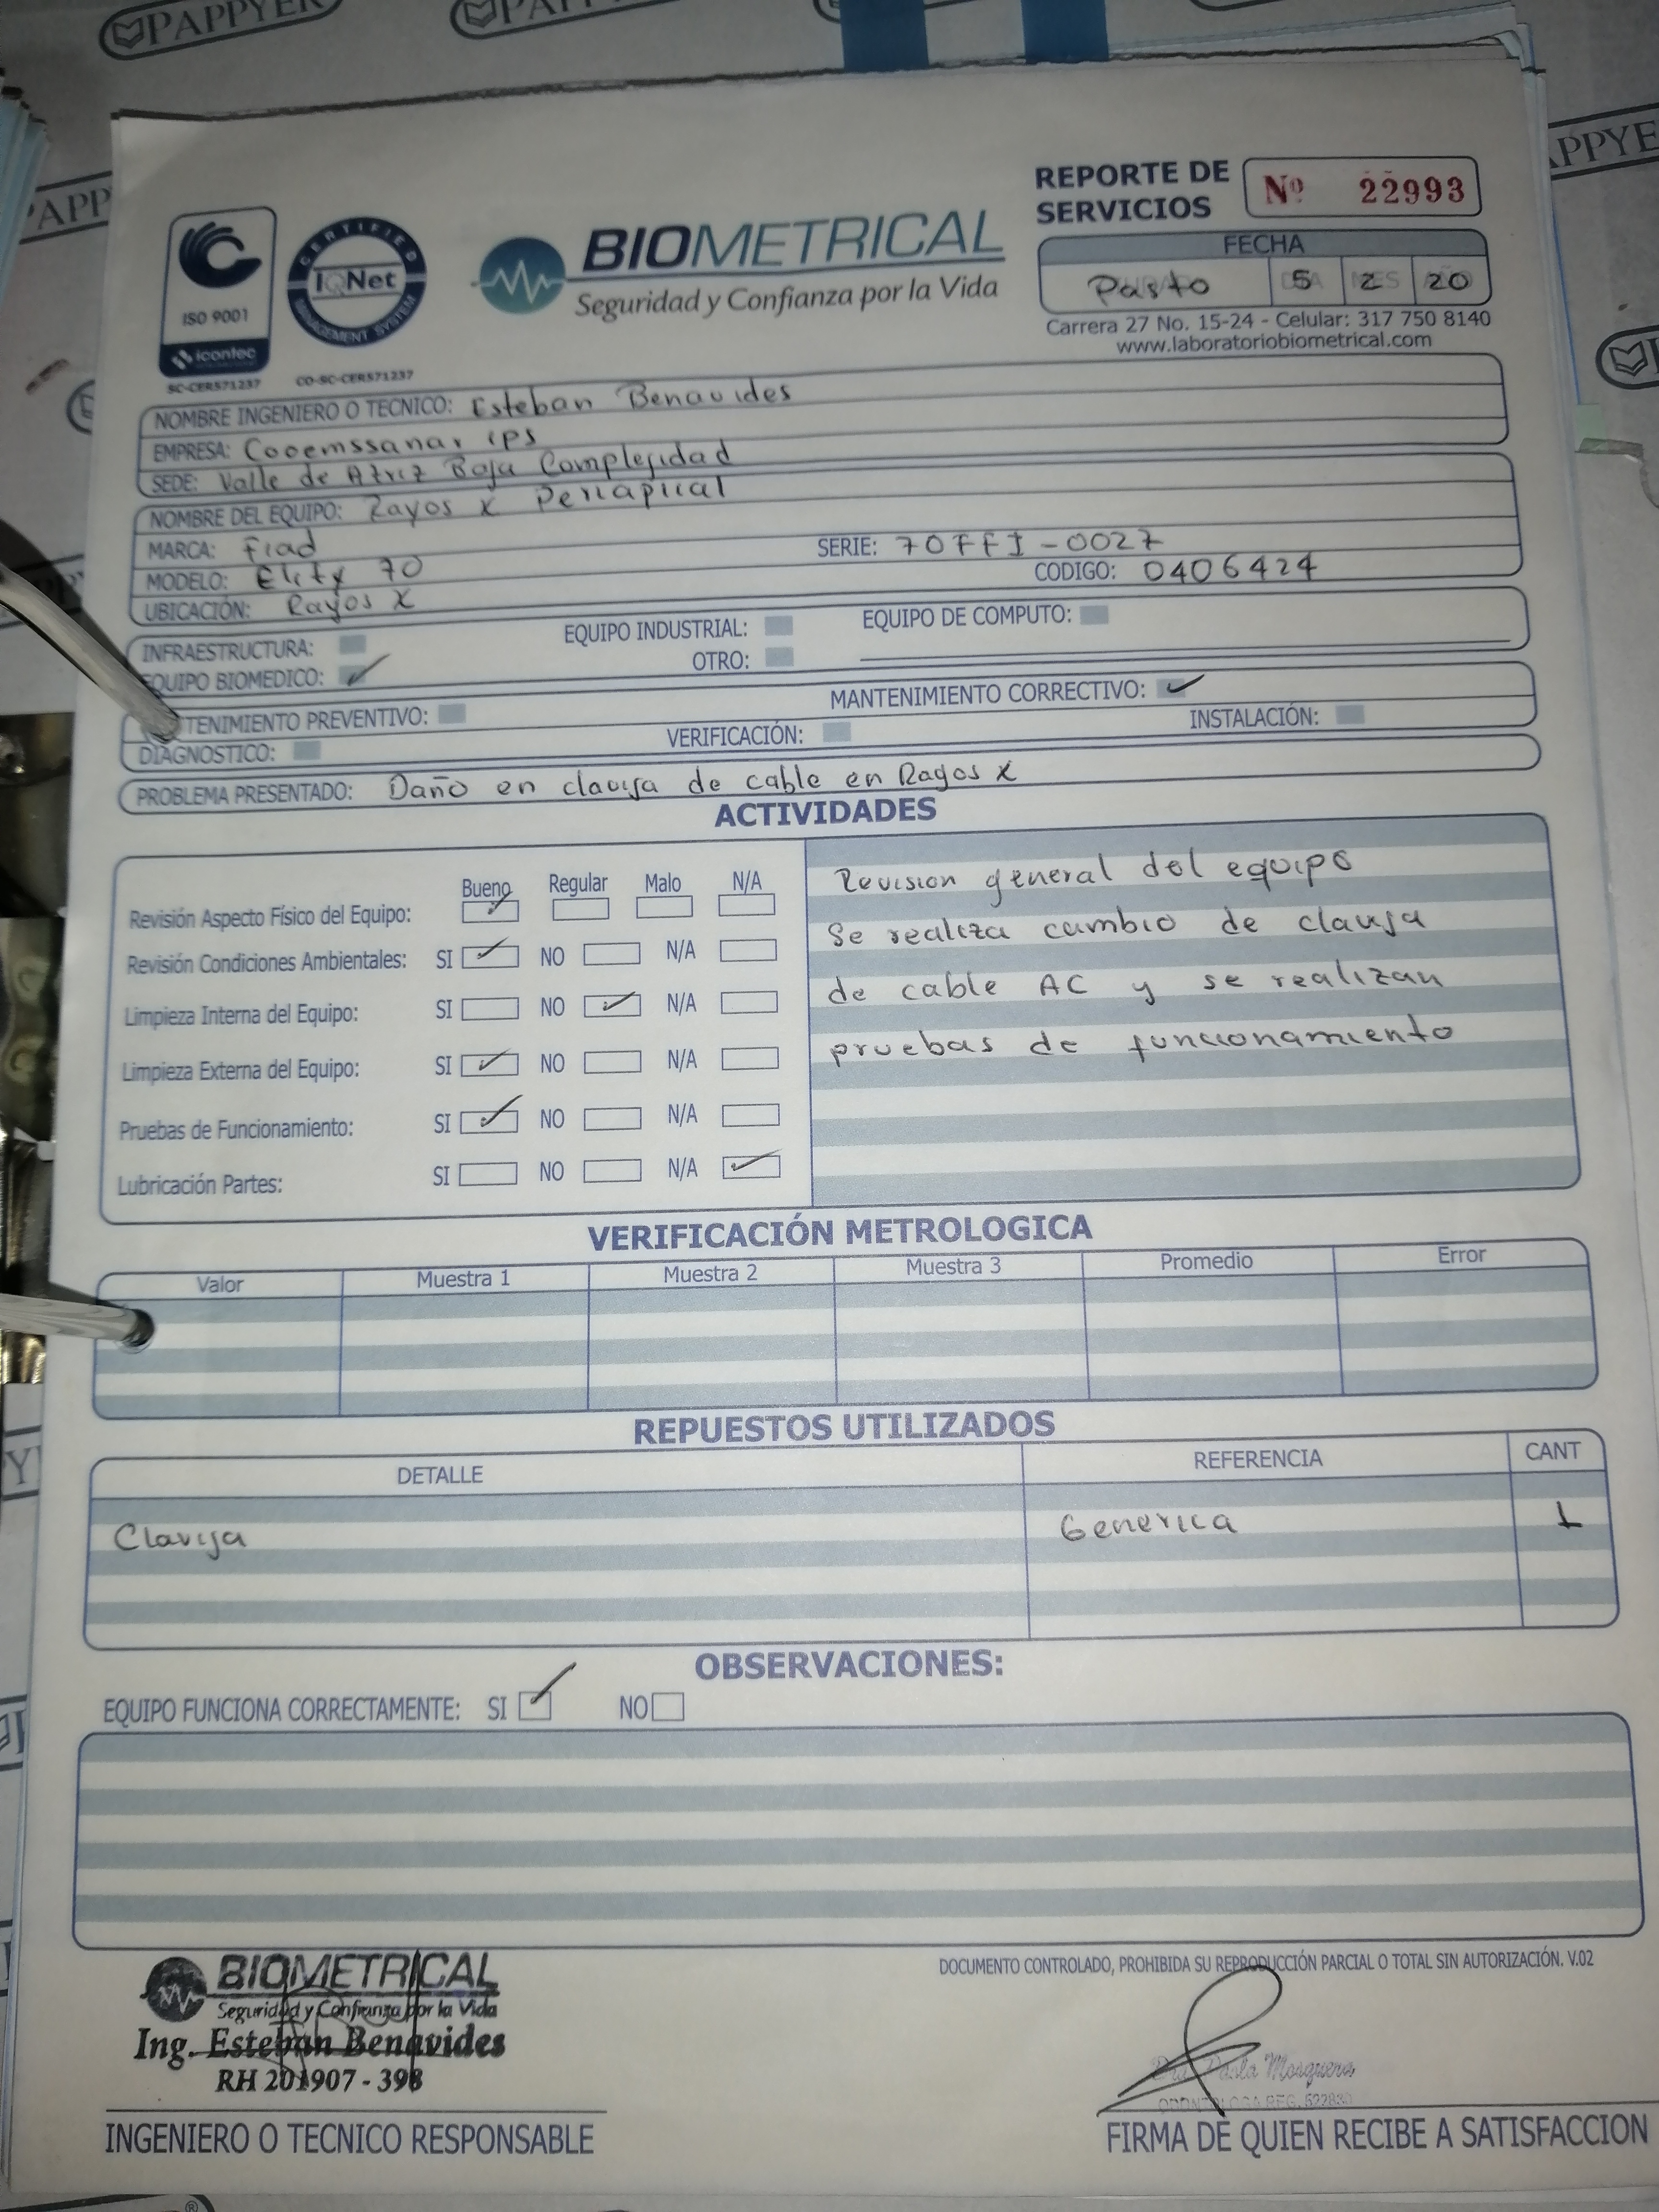 REPORTE DE SERVICIOS
Nº 22993
ISO 9001
icontec
SC-CER571237
CERTIFIED
IQNet
MANAGEMENT SYSTEM
CO-SC-CER571237
BIOMETRICAL
Seguridad y Confianza por la Vida
FECHA
Pasto 5 2 20
Carrera 27 No. 15-24 - Celular: 317 750 8140
www.laboratoriobiometrical.com
NOMBRE INGENIERO O TECNICO: Esteban Benavides
EMPRESA: Cooemssanar ips
SEDE: Valle de Atriz Baja Complejidad
NOMBRE DEL EQUIPO: Rayos X Periapical
MARCA: Fiad SERIE: 70FFI-0027
MODELO: Elity 70 CODIGO: 0406424
UBICACIÓN: Rayos X
INFRAESTRUCTURA: EQUIPO INDUSTRIAL: EQUIPO DE COMPUTO:
EQUIPO BIOMEDICO: ✓ OTRO:
TENIMIENTO PREVENTIVO: MANTENIMIENTO CORRECTIVO: ✓
DIAGNOSTICO: VERIFICACIÓN: INSTALACIÓN:
PROBLEMA PRESENTADO: Daño en clavija de cable en Rayos X
ACTIVIDADES
Bueno Regular Malo N/A
Revisión Aspecto Físico del Equipo: ✓
Revisión Condiciones Ambientales: SI ✓ NO N/A
Limpieza Interna del Equipo: SI NO ✓ N/A
Limpieza Externa del Equipo: SI ✓ NO N/A
Pruebas de Funcionamiento: SI ✓ NO N/A
Lubricación Partes: SI NO N/A ✓
Revision general del equipo
Se realiza cambio de clavija
de cable AC y se realizan
pruebas de funcionamiento
VERIFICACIÓN METROLOGICA
Valor Muestra 1 Muestra 2 Muestra 3 Promedio Error
REPUESTOS UTILIZADOS
DETALLE REFERENCIA CANT
Clavija Generica 1
OBSERVACIONES:
EQUIPO FUNCIONA CORRECTAMENTE: SI ✓ NO
DOCUMENTO CONTROLADO, PROHIBIDA SU REPRODUCCIÓN PARCIAL O TOTAL SIN AUTORIZACIÓN. V.02
BIOMETRICAL
Seguridad y Confianza por la Vida
Ing. Esteban Benavides
RH 201907 - 398
INGENIERO O TECNICO RESPONSABLE
Dra. Paola Mosquera
ODONTOLOGA REG. 522830
FIRMA DE QUIEN RECIBE A SATISFACCION
PAPPYER